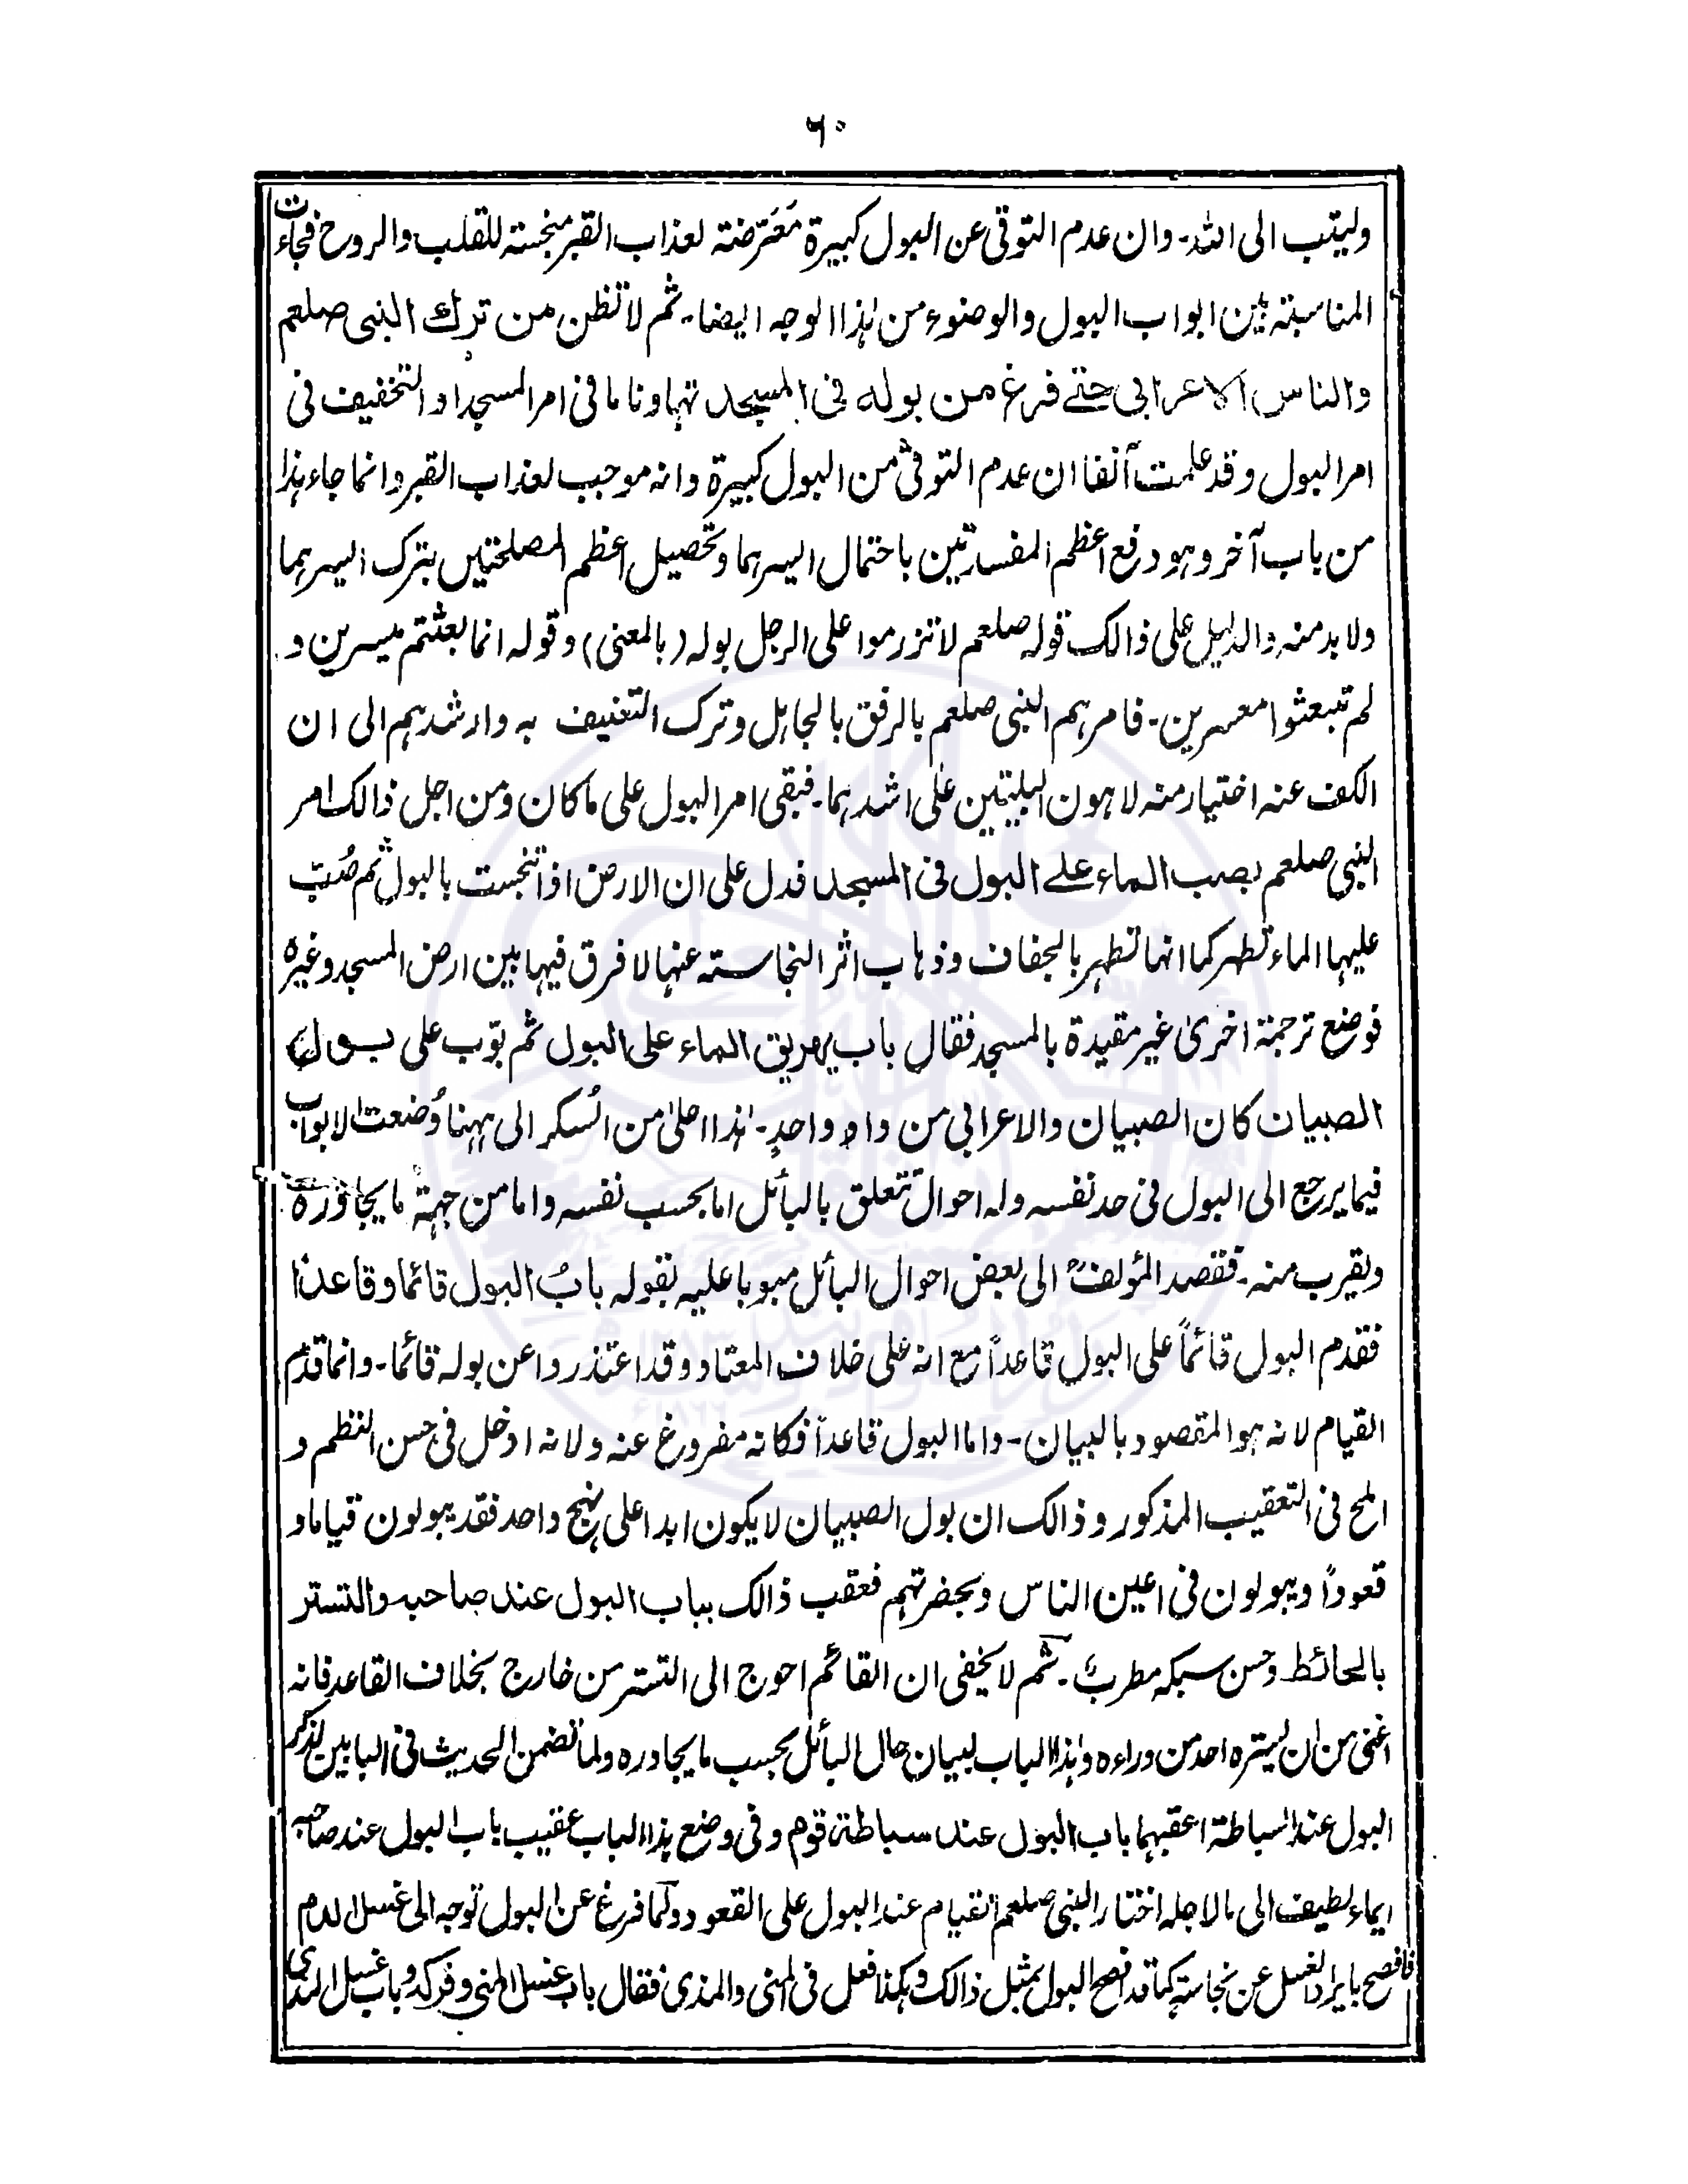 ۶۰
وليتب الى الله۔ وان عدم التوقى عن البول كبيرة مَعَرَّضة لعذاب القبر منجسة للقلب والروح فجاءت
المناسبة بين ابواب البول والوضوء من هذا الوجه ايضا۔ ثم لا تظن من ترك النبى صلعم
والناس الاعرابى حتے فرغ من بوله فى المسجد تهاونا ما فى امر المسجد او التخفيف فى
امر البول وقد علمت آنفا ان عدم التوقى من البول كبيرة وانه موجب لعذاب القبر وانما جاء هذا
من باب آخر وهو دفع اعظم المفسدتين باحتمال ايسرهما وتحصيل اعظم المصلحتين بترك ايسرهما
ولا بد منه والدليل على ذالك قوله صلعم لا تزرموا على الرجل بوله (بالمعنى) وقوله انما بعثتم ميسرين و
لم تبعثوا معسرين۔ فامرهم النبى صلعم بالرفق بالجاهل وترك التعنيف به وارشدهم الى ان
الكف عنه اختيار منه لاهون البليتين على اشدهما۔ فبقى امر البول على ما كان ومن اجل ذالك امر
النبى صلعم بصب الماء علے البول فى المسجد فدل على ان الارض اذا تنجست بالبول ثم صُبّ
عليها الماء تطهر كما انها تطهر بالجفاف وذهاب اثر النجاسة عنها لا فرق فيها بين ارض المسجد وغيره
فوضع ترجمة اخرىٰ غير مقيدة بالمسجد فقال باب يهريق الماء على البول ثم بوّب على بول
الصبيان كان الصبيان والاعرابى من واد واحدٍ۔ هذا احلىٰ من السُكر الى ههنا وُضعت الابواب
فيما يرجع الى البول فى حد نفسه وله احوال تتعلق بالبائل اما بحسب نفسه واما من جهة ما يجاوره
ويقرب منه۔ فقصد المؤلفؒ الى بعض احوال البائل مبوبا عليه بقوله بابُ البول قائما وقاعدًا
فقدم البول قائماً على البول قاعداً مع انه على خلاف المعتاد وقد اعتذروا عن بوله قائما۔ وانما قدّم
القيام لانه هو المقصود بالبيان۔ واما البول قاعداً فكانه مفروغ عنه ولانه ادخل فى حسن النظم و
املح فى التعقيب المذكور وذالك ان بول الصبيان لا يكون ابدا على نهج واحد فقد يبولون قياما و
قعوداً ويبولون فى اعين الناس وبحضرتهم فعقب ذالك بباب البول عند صاحبه والتستر
بالحائط وحسن سبكه مطربك۔ ثم لا يخفى ان القائم احوج الى التستر من خارج بخلاف القاعد فانه
اغنى من ان يستره احد من وراءه وهذا الباب لبيان حال البائل بحسب ما يجاوره ولما تضمن الحديث فى البابين لذكر
البول عند السباطة اعقبهما باب البول عند سباطة قوم وفى وضع هذا الباب عقيب باب البول عند صاحبه
ايماء لطيف الى ما لاجله اختار النبى صلعم القيام عند البول على القعود ولما فرغ عن البول توجه الى غسل الدم
فافصح بايراد الغسل عن نجاسته كما قد افصح البول بمثل ذالك وهكذا فعل فى المنى والمذى فقال باب غسل المنى وفركه وباب غسل المذى